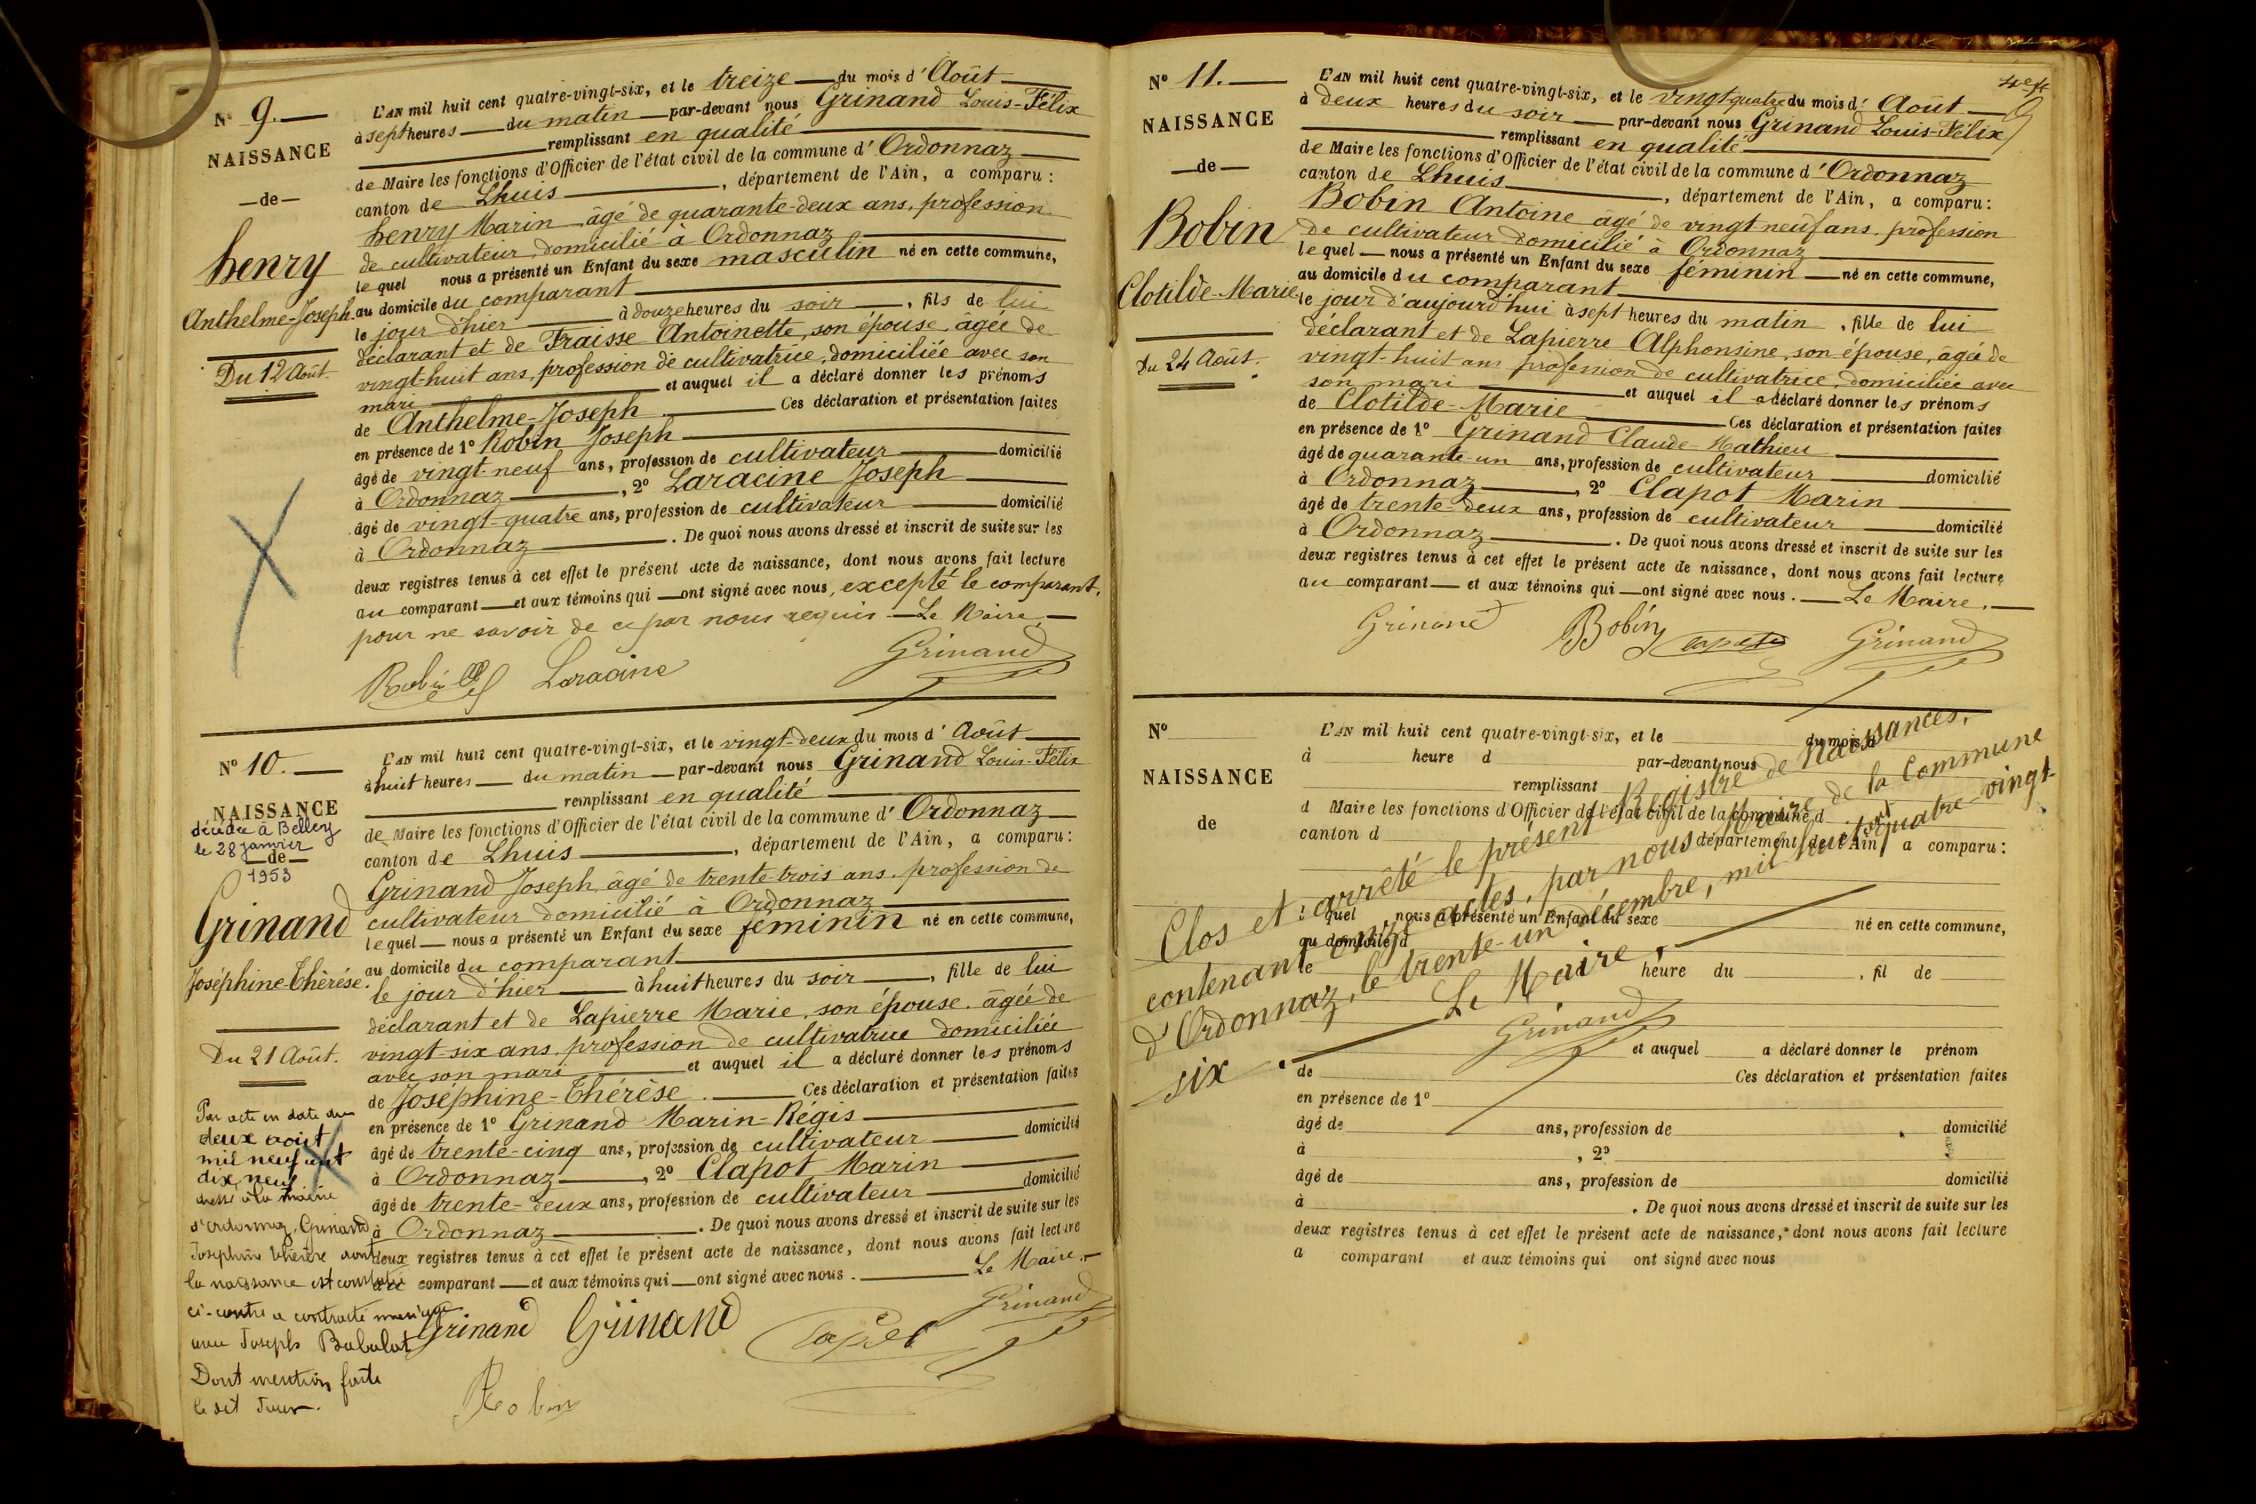 N° 9.
NAISSANCE
de
henry
Anthelme-Joseph.
Du 12 Août.
L'AN mil huit cent quatre-vingt-six, et le treize du mois d'Août
à sept heures du matin par-devant nous Grinand Louis-Félix
remplissant en qualité
de Maire les fonctions d'Officier de l'état civil de la commune d'Ordonnaz
canton de Lhuis, département de l'Ain, a comparu :
henry Marin âgé de quarante-deux ans, profession
de cultivateur, domicilié à Ordonnaz
lequel nous a présenté un Enfant du sexe masculin né en cette commune,
au domicile du comparant
le jour d'hier à douze heures du soir, fils de lui
déclarant et de Fraisse Antoinette, son épouse âgée de
vingt-huit ans, profession de cultivatrice, domiciliée avec son
mari et auquel il a déclaré donner les prénoms
de Anthelme-Joseph Ces déclaration et présentation faites
en présence de 1° Robin Joseph
âgé de vingt-neuf ans, profession de cultivateur domicilié
à Ordonnaz, 2° Laracine Joseph
âgé de vingt-quatre ans, profession de cultivateur domicilié
à Ordonnaz. De quoi nous avons dressé et inscrit de suite sur les
deux registres tenus à cet effet le présent acte de naissance, dont nous avons fait lecture
au comparant et aux témoins qui ont signé avec nous, excepté le comparant,
pour ne savoir de ce par nous requis Le Maire.
Robin Laracine Grinand
N° 10.
NAISSANCE
décédée à Belley
le 28 janvier
de
1953
Grinand
Joséphine-Thérèse.
Du 21 Août.
Par acte en date du
deux août
mil neuf cent
dix neuf
dressé à la mairie
d'Ordonnaz, Grinand
Joséphine Thérèse dont
la naissance est constatée
ci-contre a contracté mariage
avec Joseph Babolat
Dont mention faite
le dit jour.
L'AN mil huit cent quatre-vingt-six, et le vingt-deux du mois d'Août
à huit heures du matin par-devant nous Grinand Louis-Félix
remplissant en qualité
de Maire les fonctions d'Officier de l'état civil de la commune d'Ordonnaz
canton de Lhuis, département de l'Ain, a comparu :
Grinand Joseph, âgé de trente-trois ans, profession de
cultivateur domicilié à Ordonnaz
lequel nous a présenté un Enfant du sexe féminin né en cette commune,
au domicile du comparant
le jour d'hier à huit heures du soir, fille de lui
déclarant et de Lapierre Marie, son épouse, âgée de
vingt-six ans, profession de cultivatrice domiciliée
avec son mari et auquel il a déclaré donner les prénoms
de Joséphine-Thérèse. Ces déclaration et présentation faites
en présence de 1° Grinand Marin-Régis
âgé de trente-cinq ans, profession de cultivateur domicilié
à Ordonnaz, 2° Clapot Marin
âgé de trente-deux ans, profession de cultivateur domicilié
à Ordonnaz. De quoi nous avons dressé et inscrit de suite sur les
deux registres tenus à cet effet le présent acte de naissance, dont nous avons fait lecture
au comparant et aux témoins qui ont signé avec nous. Le Maire.
Grinand Grinand Grinand
Robin
N° 11.
NAISSANCE
de
Bobin
Clotilde-Marie
Du 24 Août.
L'AN mil huit cent quatre-vingt-six, et le vingt-quatre du mois d'Août
à deux heures du soir par-devant nous Grinand Louis-Félix
remplissant en qualité
de Maire les fonctions d'Officier de l'état civil de la commune d'Ordonnaz
canton de Lhuis, département de l'Ain, a comparu :
Bobin Antoine âgé de vingt-neuf ans, profession
de cultivateur domicilié à Ordonnaz
lequel nous a présenté un Enfant du sexe féminin né en cette commune,
au domicile du comparant
le jour d'aujourd'hui à sept heures du matin, fille de lui
déclarant et de Lapierre Alphonsine, son épouse, âgée de
vingt-huit ans profession de cultivatrice, domiciliée avec
son mari et auquel il a déclaré donner les prénoms
de Clotilde-Marie Ces déclaration et présentation faites
en présence de 1° Grinand Claude-Mathieu
âgé de quarante-un ans, profession de cultivateur domicilié
à Ordonnaz, 2° Clapot Marin
âgé de trente-deux ans, profession de cultivateur domicilié
à Ordonnaz. De quoi nous avons dressé et inscrit de suite sur les
deux registres tenus à cet effet le présent acte de naissance, dont nous avons fait lecture
au comparant et aux témoins qui ont signé avec nous. Le Maire.
Grinand Bobin Grinand
N°
NAISSANCE
de
L'AN mil huit cent quatre-vingt-six, et le du mois d
à heure d par-devant nous
remplissant
d Maire les fonctions d'Officier de l'état civil de la commune d
canton d département de l'Ain, a comparu :
lequel nous a présenté un Enfant du sexe né en cette commune,
au domicile d
le heure du, fil de
et auquel a déclaré donner le prénom
de Ces déclaration et présentation faites
en présence de 1°
âgé de ans, profession de domicilié
à, 2°
âgé de ans, profession de domicilié
à. De quoi nous avons dressé et inscrit de suite sur les
deux registres tenus à cet effet le présent acte de naissance, dont nous avons fait lecture
a comparant et aux témoins qui ont signé avec nous
Clos et arrêté le présent Registre de Naissances,
contenant onze actes, par nous Maire de la Commune
d'Ordonnaz, le trente-un décembre, mil huit cent quatre-vingt-
six. Le Maire,
Grinand